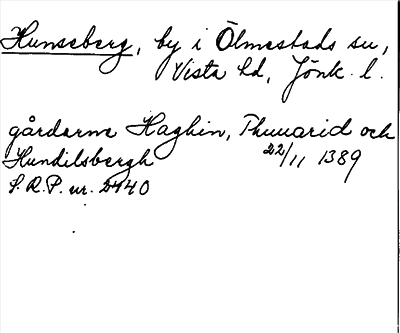 Hunseberg, by i Ölmestads sn,
Vista hd, Jönk. l.
gårdarna Haghin, Thuuarid och
Hundilsbergh 22/11 1389
S.R.P. nr. 2440